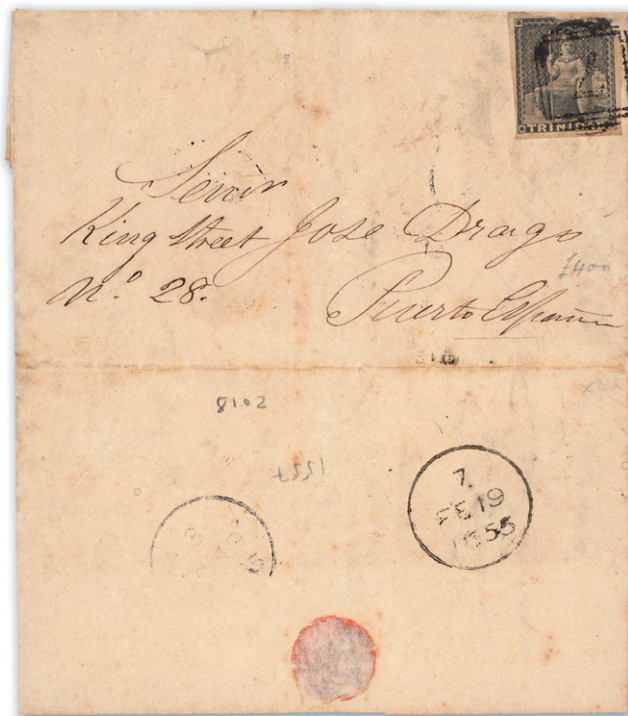 TRINIDAD
Senor
King Street Jose Drago
No. 28.
Puerto España
£400
8102
7
FE 19
1855